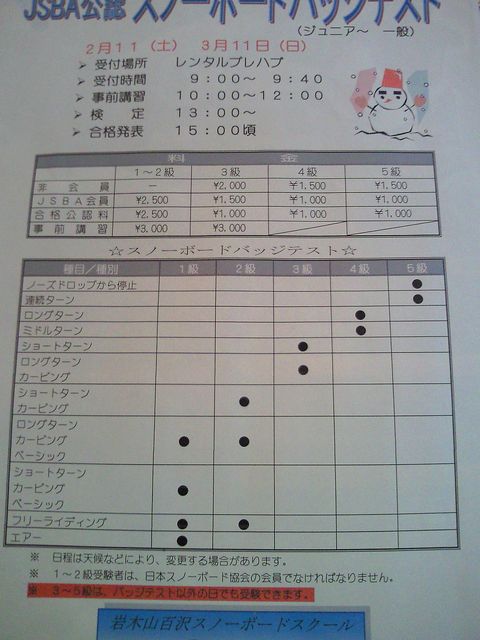 JSBA公認 スノーボードバッジテスト
(ジュニア～ 一般)
2月11(土) 3月11日(日)
➢ 受付場所 レンタルプレハブ
➢ 受付時間 9:00～ 9:40
➢ 事前講習 10:00～12:00
➢ 検定 13:00～
➢ 合格発表 15:00頃
料金
1～2級 3級 4級 5級
非会員 － ¥2,000 ¥1,500 ¥1,500
JSBA会員 ¥2,500 ¥1,500 ¥1,000 ¥1,000
合格公認料 ¥2,500 ¥1,000 ¥1,000 ¥1,000
事前講習 ¥3,000 ¥3,000
☆スノーボードバッジテスト☆
種目／種別 1級 2級 3級 4級 5級
ノーズドロップから停止 ●
連続ターン ●
ロングターン ●
ミドルターン ●
ショートターン ●
ロングターン
カービング ●
ショートターン
カービング ●
ロングターン
カービング ● ●
ベーシック
ショートターン
カービング ●
ベーシック
フリーライディング ● ●
エアー ●
※ 日程は天候などにより、変更する場合があります。
※ 1～2級受験者は、日本スノーボード協会の会員でなければなりません。
※ 3～5級は、バッジテスト以外の日でも受験できます。
岩木山百沢スノーボードスクール